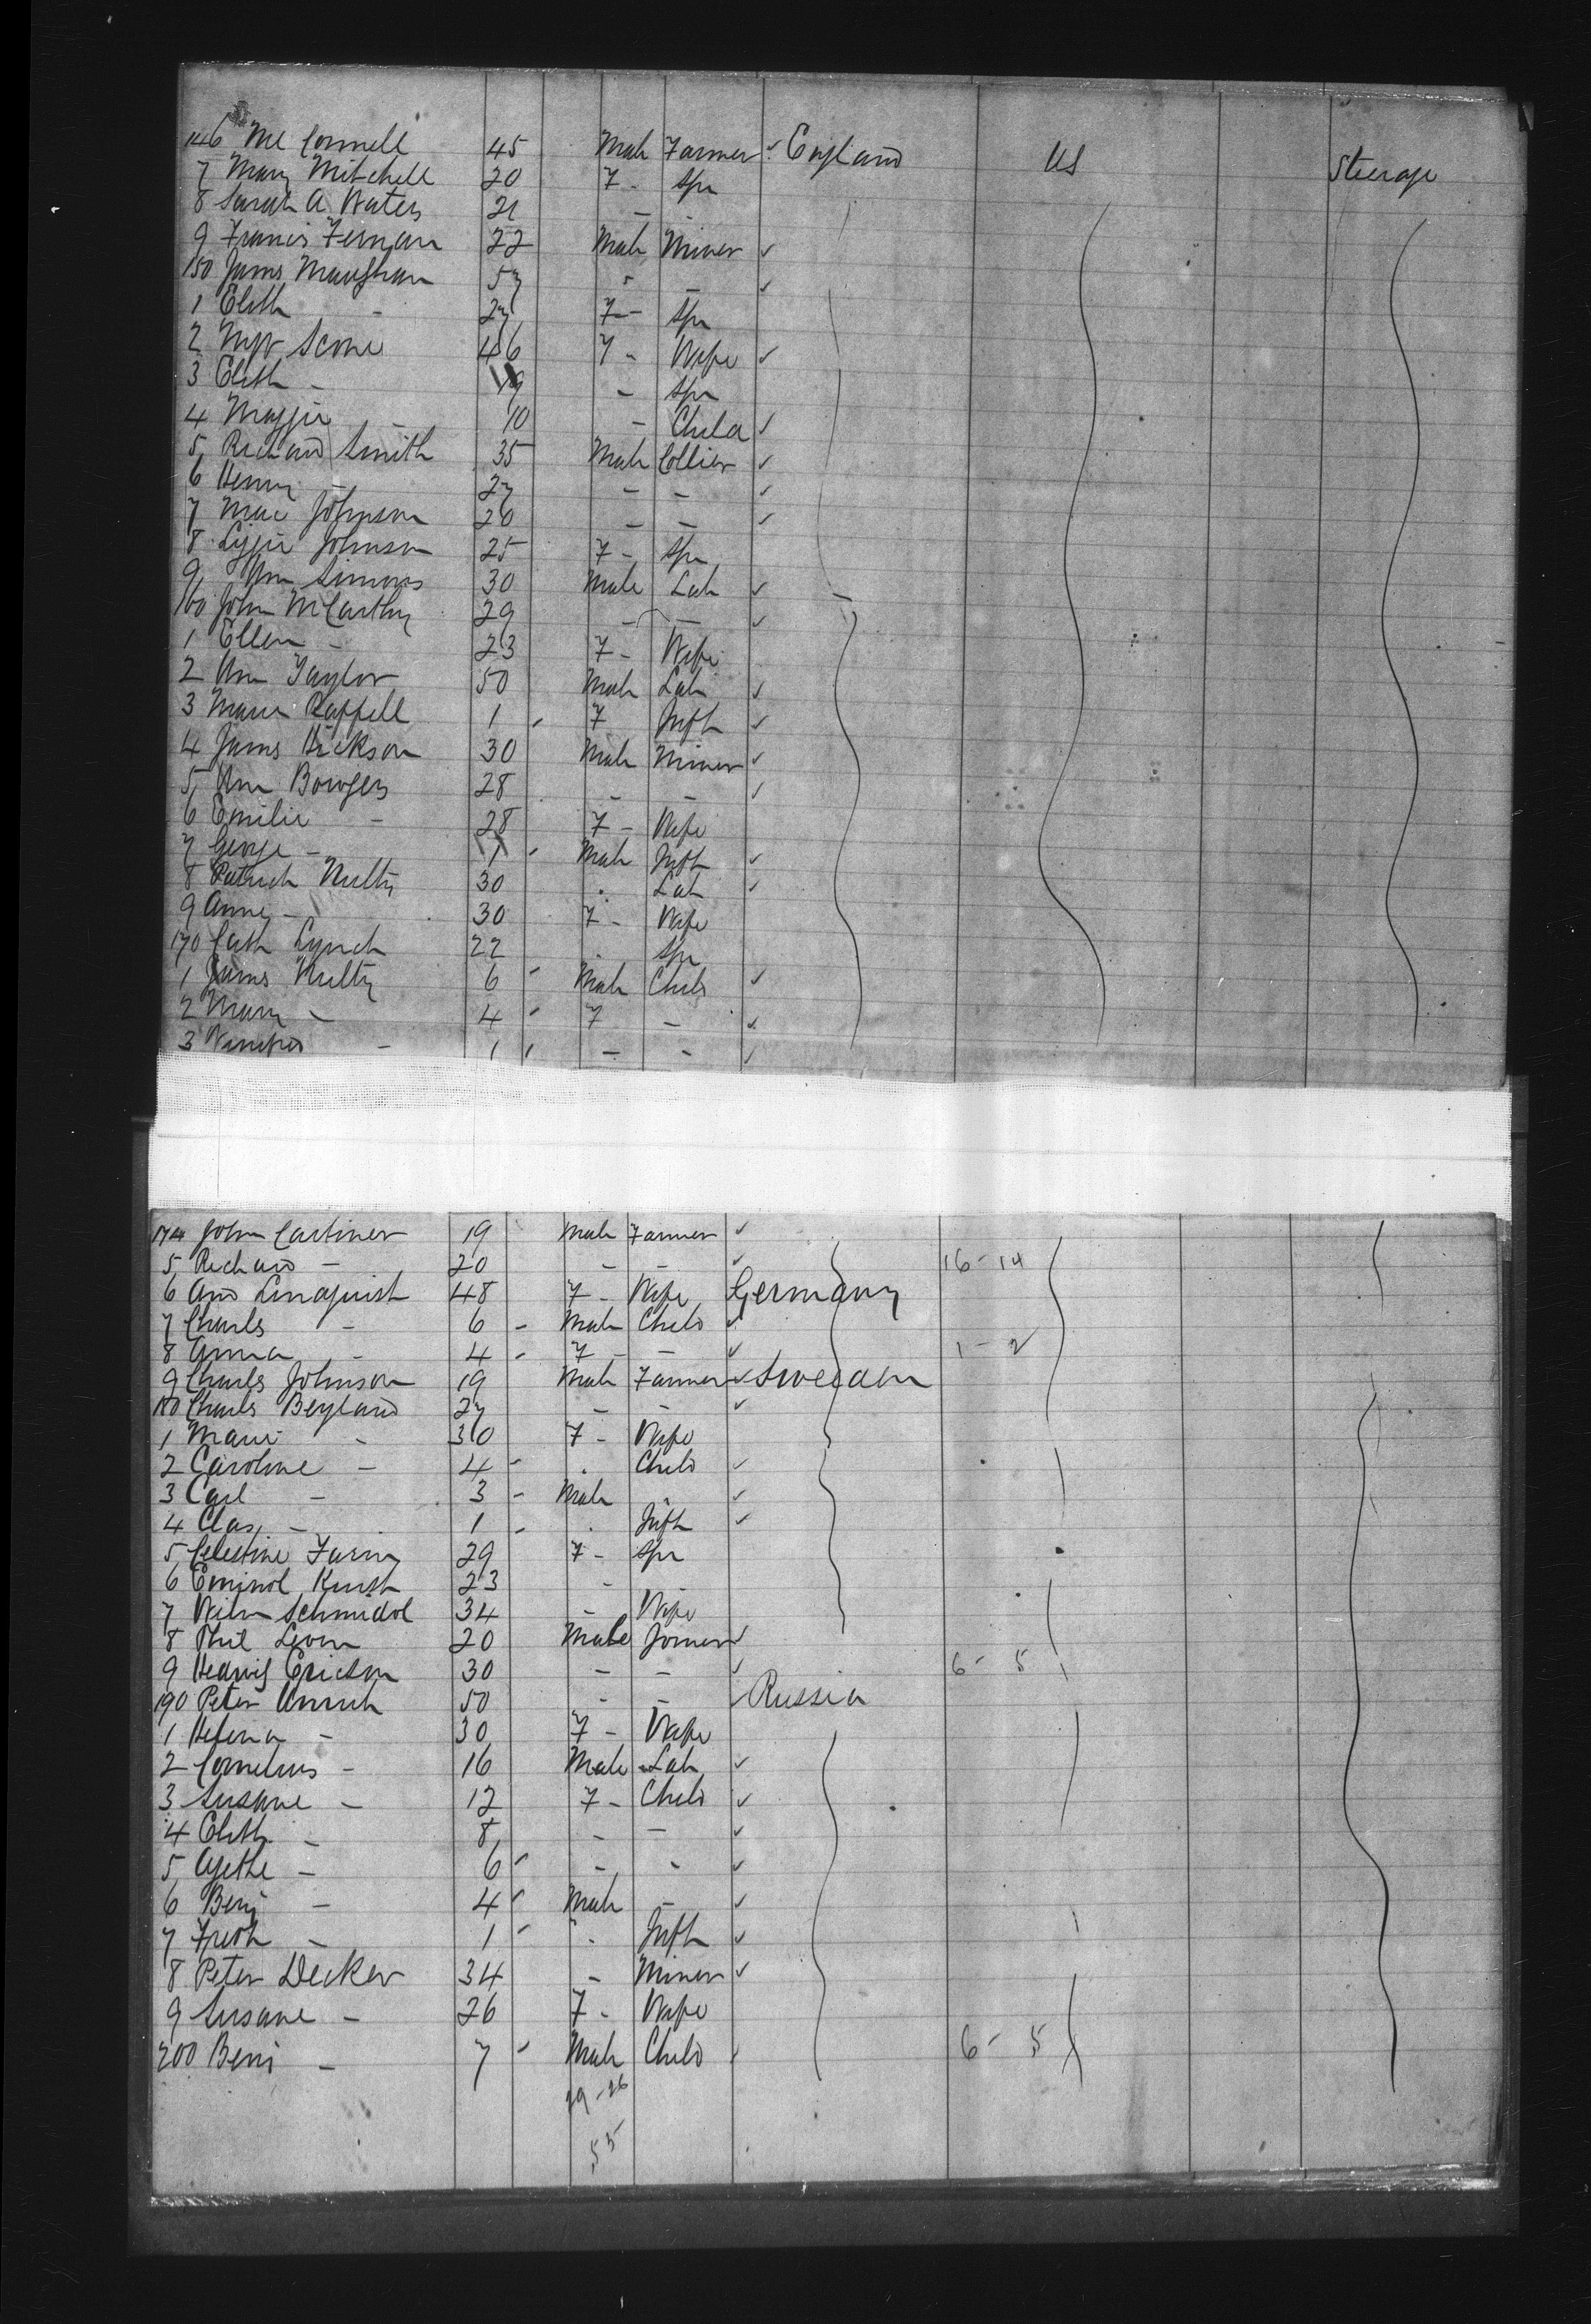 146 Mc Connell 45 Male Farmer ✓ England US Steerage
7 Mary Mitchell 20 F - Spr
8 Sarah A Waters 21 - -
9 Francis Fernan 22 Male Miner ✓
150 James Maughan 57 - - ✓
1 Elith - 27 F - Spr
2 Mrs Scone 46 F - Wife ✓
3 Elith - 19 - Spr
4 Maggie - 10 - Child ✓
5 Richard Smith 35 Male Collier ✓
6 Henry - 27 - - ✓
7 Mac Johnson 20 - - ✓
8 Lizzie Johnson 25 F - Spr
9 Wm Simons 30 Male Lab ✓
160 John McCarthy 29 - - ✓
1 Ellen - 23 F - Wife
2 Wm Taylor 50 Male Lab ✓
3 Marie Rappell 1 F Inft ✓
4 James Hickson 30 Male Miner ✓
5 Wm Bowgers 28 - - ✓
6 Emilie - 28 F - Wife
7 George - 1 Male Inft ✓
8 Patrick Nulty 30 Lab ✓
9 Anne - 30 F - Wife
170 Cath Lynch 22 Spr
1 James Nulty 6 Male Child ✓
2 Mary - 4 F - ✓
3 - 1 - - ✓
174 John Cartiner 19 Male Farmer ✓
5 Richard - 20 - - ✓ 16 - 14
6 And Linaquist 48 F - Wife Germany
7 Charles - 6 Male Child ✓
8 Anna - 4 F - ✓ 1 - 2
9 Charles Johnson 19 Male Farmer ✓ Sweden
180 Charles Beyland 27 - - ✓
1 Marie - 30 F - Wife
2 Caroline - 4 Child ✓
3 Carl - 3 Male ✓
4 Clas - 1 Inft ✓
5 Celestine 29 F - Spr
6 23 -
7 Wilm Schmidol 34 - Wife
8 Phil Leven 20 Male Joiner ✓
9 Hedwig Ericson 30 - - ✓ 6 - 5
190 Peter Unruh 50 - - ✓ Russia
1 Helena - 30 F - Wife
2 Cornelius - 16 Male Lab ✓
3 Susane - 12 F - Child ✓
4 Elith - 8 - - ✓
5 Agethe - 6 - - ✓
6 Benj - 4 Male - ✓
7 - 1 Inft ✓
8 Peter Decker 34 - Miner ✓
9 Susane - 26 F - Wife
200 Beni - 7 Male Child 6 - 5
29 - 26
55